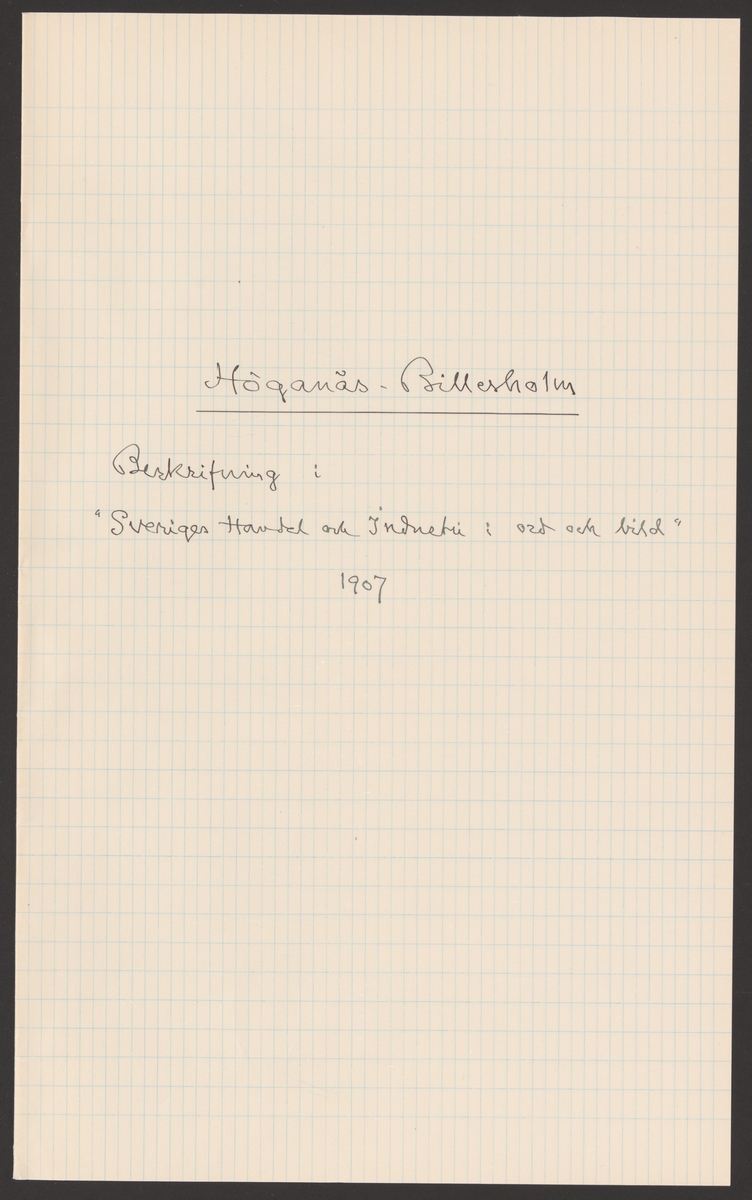 Höganäs - Billesholm
Beskrifning i
"Sveriges Handel och Industri i ord och bild"
1907